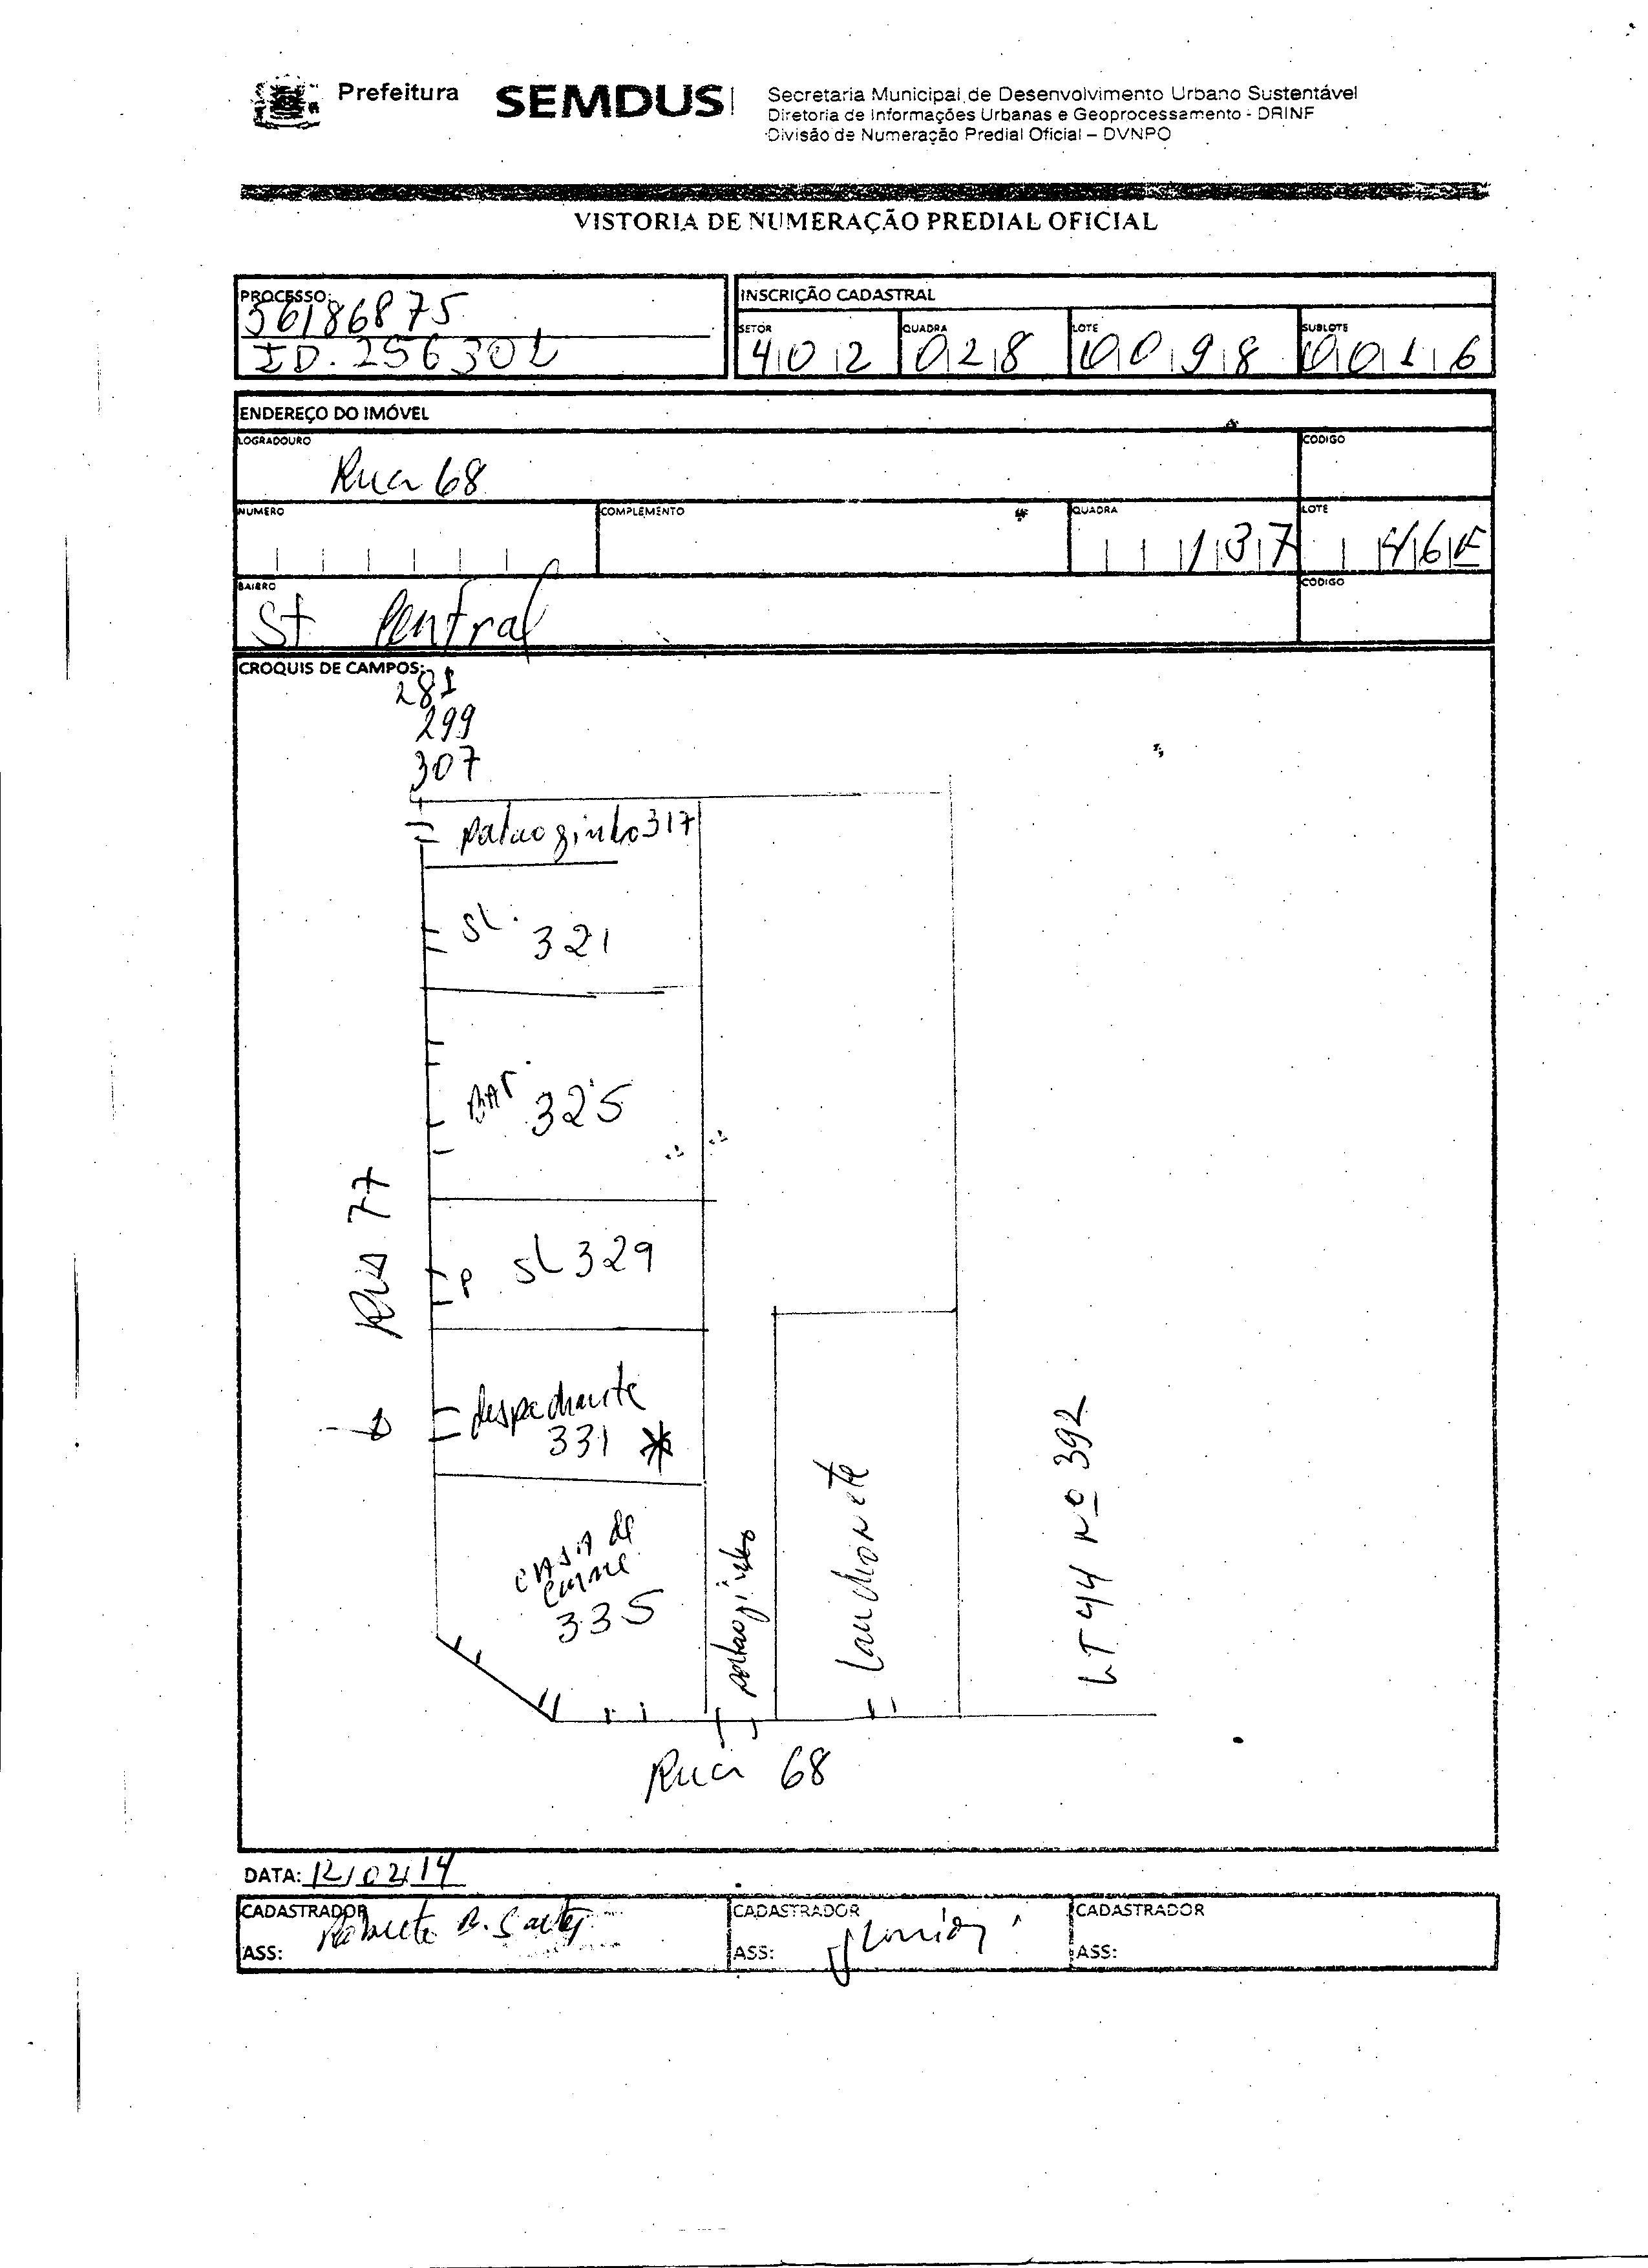 Prefeitura SEMDUS
Secretaria Municipal de Desenvolvimento Urbano Sustentável
Diretoria de Informações Urbanas e Geoprocessamento - DRINF
Divisão de Numeração Predial Oficial – DVNPO
VISTORIA DE NUMERAÇÃO PREDIAL OFICIAL
PROCESSO:
56186875
ID. 256301
INSCRIÇÃO CADASTRAL
SETOR QUADRA LOTE SUBLOTE
402 028 0098 0016
ENDEREÇO DO IMÓVEL
LOGRADOURO CODIGO
Rua 68
NUMERO COMPLEMENTO QUADRA LOTE
137 46E
BAIRRO CODIGO
St Central
CROQUIS DE CAMPOS:
281
299
307
portaozinho 317
SL. 321
BAR 325
RUA 77
P SL 329
despachante
331 *
casa de
carne
335
portaozinho
Lanchonete
LT 44 Nº 392
Rua 68
DATA: 12/02/14
CADASTRADOR CADASTRADOR CADASTRADOR
Junior
ASS: ASS: ASS: